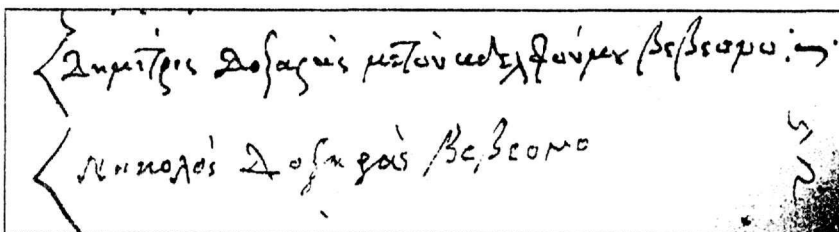 Δημἰτρις Δοξαρὰς μετὸν αδελφόν μου βεβεονο
Νηκολὸς Δοξαρὰς βεβεονο